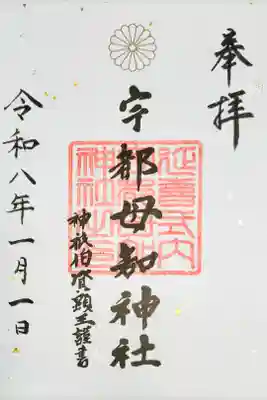 奉拝
宇都母知神社
神祇伯資顕王謹書
延喜式内
神社之印
令和八年一月一日